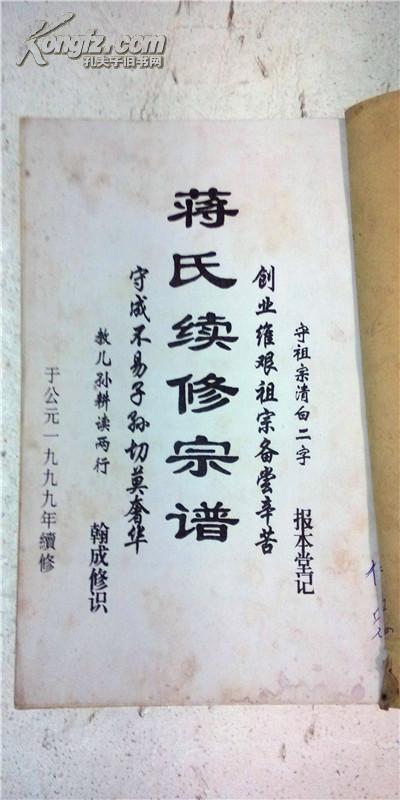 Kongfz.com
孔夫子旧书网
守祖宗清白二字
报本堂记
创业维艰祖宗备尝辛苦
蒋氏续修宗谱
守成不易子孙切莫奢华
教儿孙耕读两行
翰成修识
于公元一九九九年續修